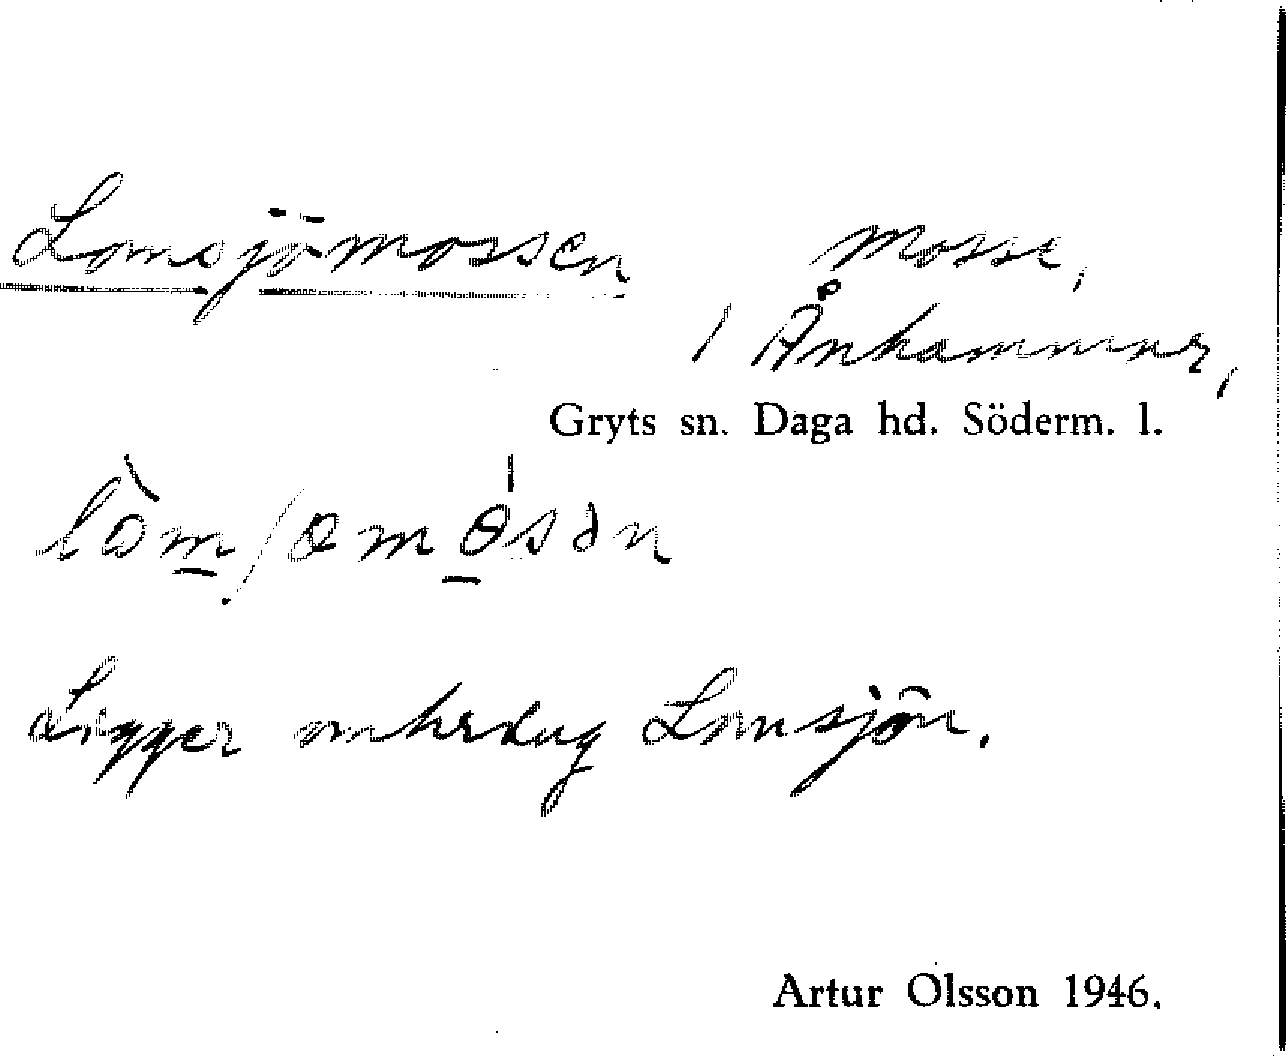 Lomsjömossen mosse,
/ Ånhammar,
Gryts sn. Daga hd. Söderm. l.
Ligger omkring Lomsjön.
Artur Olsson 1946.